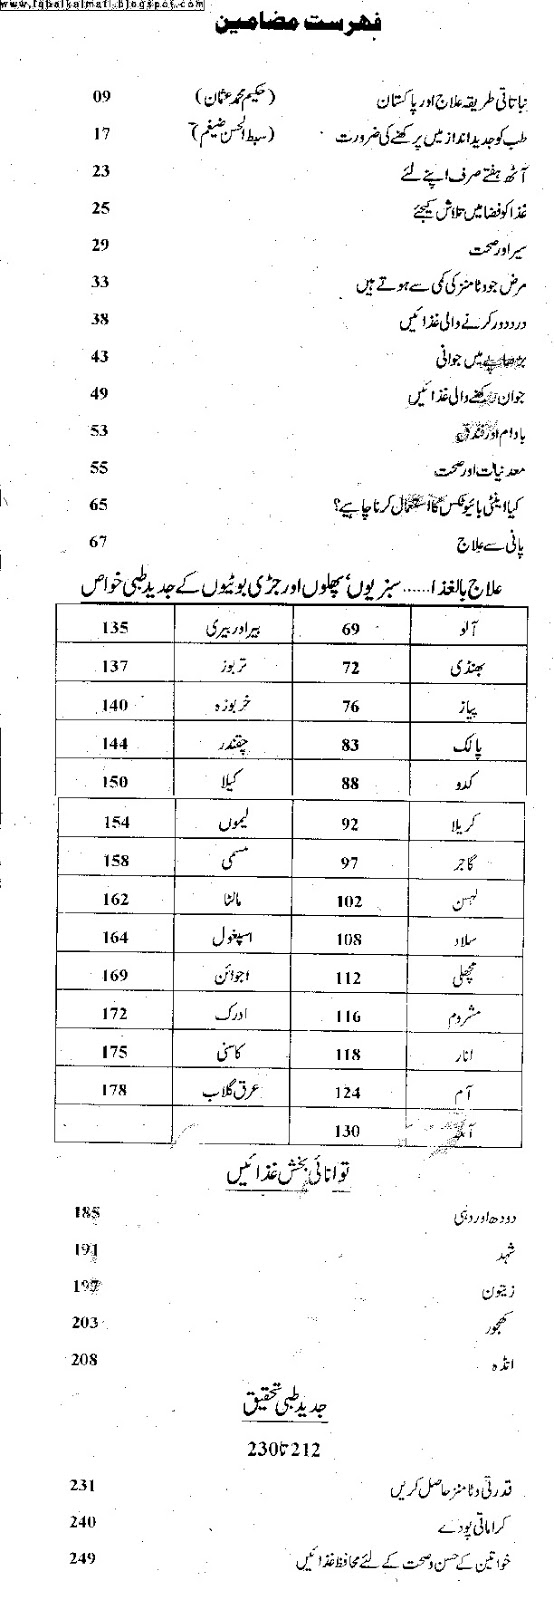 www.iqbalkalmati.blogspot.com
فہرست مضامین
نباتاتی طریقہ علاج اور پاکستان (حکیم محمد عثمان) 09
طب کو جدید انداز میں پرکھنے کی ضرورت (سبط الحسن ضیغم) 17
آٹھ ہفتے صرف اپنے لئے 23
غذا کو فضا میں تلاش کیجئے 25
سیر اور صحت 29
مرض جو وٹامنز کی کمی سے ہوتے ہیں 33
درد دور کرنے والی غذائیں 38
بڑھاپے میں جوانی 43
جوان رکھنے والی غذائیں 49
بادام اور فندق 53
معدنیات اور صحت 55
کیا اینٹی بائیوٹکس کا استعمال کرنا چاہیے؟ 65
پانی سے علاج 67
علاج بالغذا...... سبزیوں، پھلوں اور جڑی بوٹیوں کے جدید طبی خواص
آلو 69 بیر اور بیری 135
بھنڈی 72 تربوز 137
پیاز 76 خربوزہ 140
پالک 83 چقندر 144
کدو 88 کیلا 150
کریلا 92 لیموں 154
گاجر 97 مسمی 158
لہسن 102 مالٹا 162
سلاد 108 اسپغول 164
مچھلی 112 اجوائن 169
مشروم 116 ادرک 172
انار 118 کاسنی 175
آم 124 عرق گلاب 178
130
توانائی بخش غذائیں
دودھ اور دہی 185
شہد 191
زیتون 197
کھجور 203
انڈہ 208
جدید طبی تحقیق
212 تا 230
قدرتی وٹامنز حاصل کریں 231
کراماتی پودے 240
خواتین کے حسن و صحت کے لئے محافظ غذائیں 249